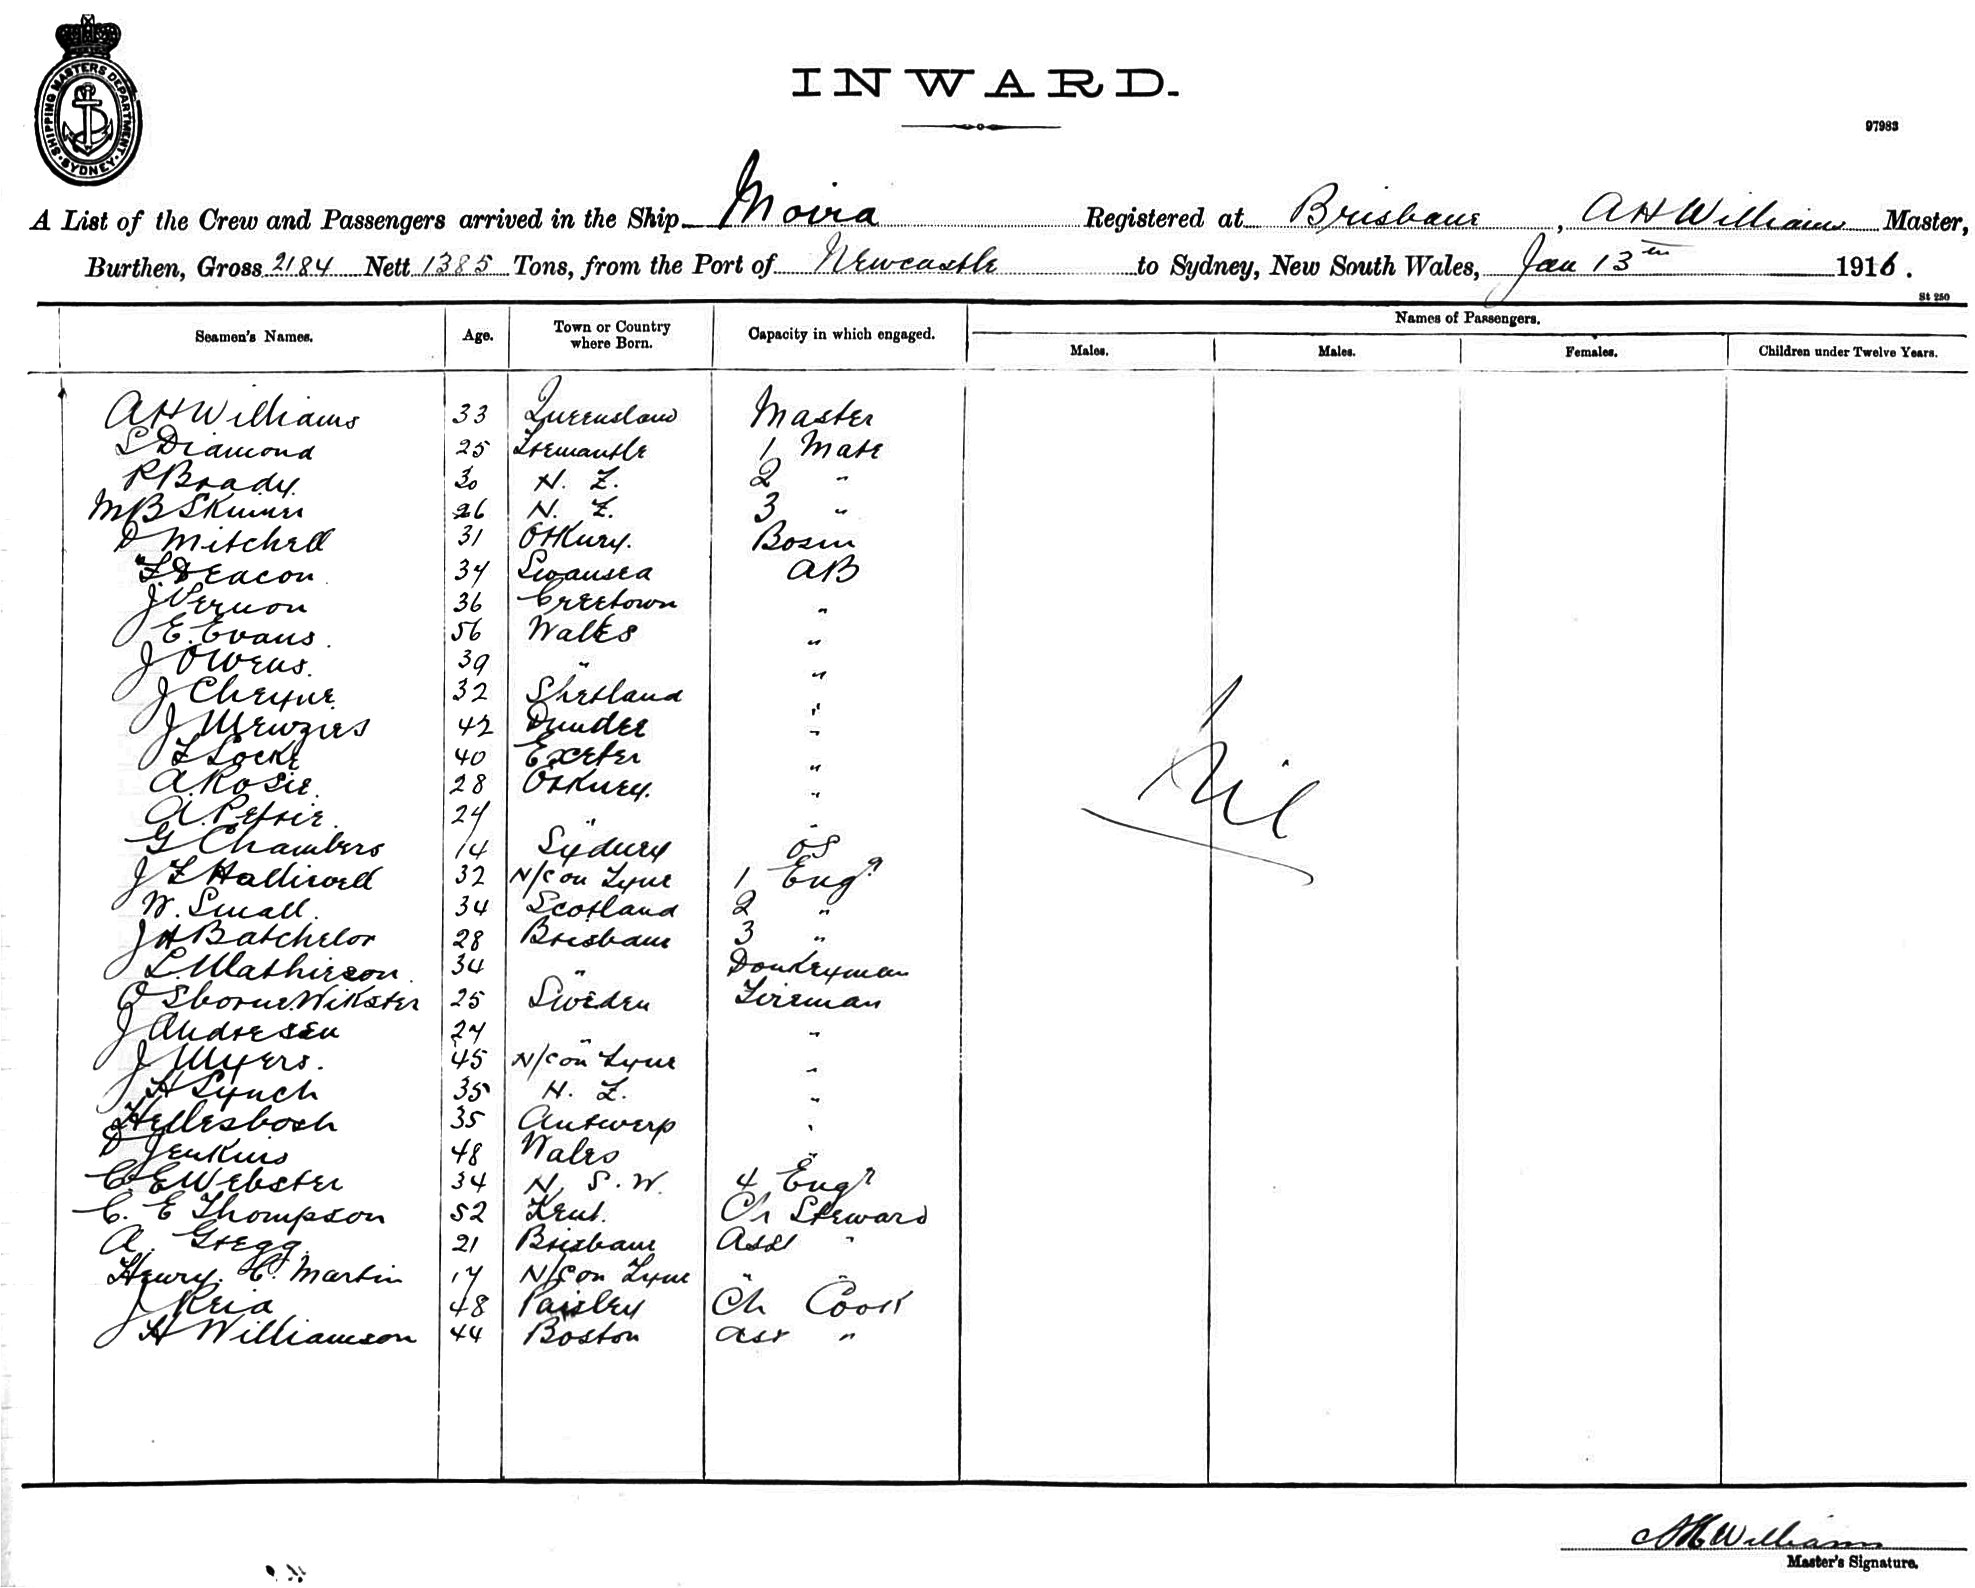 SHIPPING MASTERS DEPARTMENT · SYDNEY ·
INWARD.
97983
A List of the Crew and Passengers arrived in the Ship Moira Registered at Brisbane, A H Williams Master,
Burthen, Gross 2184 Nett 1385 Tons, from the Port of Newcastle to Sydney, New South Wales, Jan 13th 1916.
St 250
Seamen's Names. Age. Town or Country where Born. Capacity in which engaged. Names of Passengers.
Males. Males. Females. Children under Twelve Years.
A H Williams 33 Queensland Master
S Diamond 25 Fremantle 1 Mate
P Brady 30 N. Z. 2 "
M B Skinner 26 N. Z. 3 "
D Mitchell 31 Orkney. Bosun
F Deacon 34 Swansea AB
J Vernon 36 Creetown "
E. Evans. 56 Wales "
J Owens. 39 " "
J Cheyne 32 Shetland "
J Menzies 42 Dundee "
F Locke 40 Exeter "
A. Rosie. 28 Orkney. "
A. Petrie. 24 " "
G Chambers 14 Sydney OS
J F Halliwell 32 N/C on Tyne 1 Engr
W. Small. 34 Scotland 2 "
J H Batchelor 28 Brisbane 3 "
L. Mathieson. 34 " Donkeyman
Osborne Wikster 25 Sweden Fireman
J Andresen 27 " "
J Myers. 45 N/C on Tyne "
H Lynch 35 N. Z. "
Hellesbosh 35 Antwerp "
D Jenkins 48 Wales "
C. E Webster 34 N. S. W. 4 Engr
C. E Thompson 52 Kent. Ch Steward
A. Gregg 21 Brisbane Asst "
Henry. C. Martin 17 N/C on Tyne " "
J Reid 48 Paisley Ch Cook
H Williamson 44 Boston Asst "
Nil
A H Williams
Master's Signature.